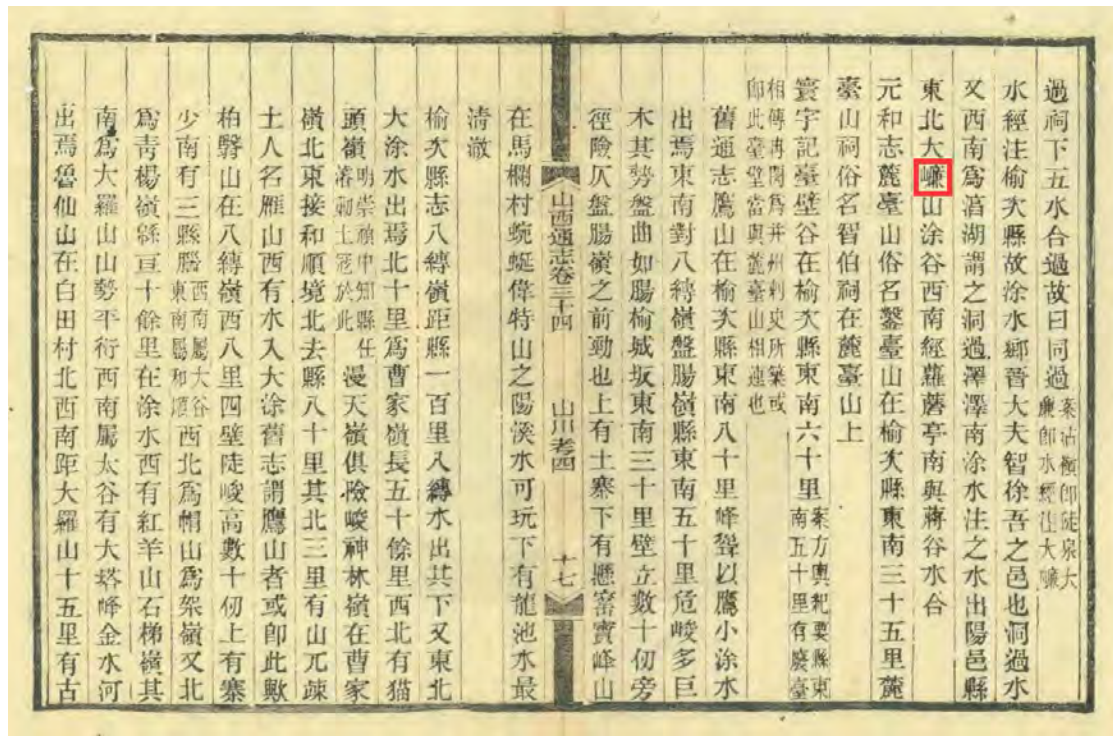 過祠下五水合過故曰同過案沾嶺卽陡泉大廉卽水經注大㠗
水經注榆次縣故涂水鄉晉大夫智徐吾之邑也洞過水
又西南爲淊湖謂之洞過澤澤南涂水注之水出陽邑縣
東北大㠗山涂谷西南經蘿蘑亭南與蔣谷水合
元和志麓臺山俗名鑿臺山在榆次縣東南三十五里麓
臺山祠俗名智伯祠在麓臺山上
寰宇記臺壁谷在榆次縣東南六十里案方輿紀要縣東南五十里有麓臺
相傳冉閔爲幷州刺史所築或卽此臺壁當與麓臺山相連也
舊通志鷹山在榆次縣東南八十里峰聳以鷹小涂水
出焉東南對八縛嶺盤腸嶺縣東南五十里危峻多巨
木其勢盤曲如腸榆城坂東南三十里壁立數十仞旁
徑險仄盤腸嶺之前勁也上有土寨下有懸窰寶峰山
在馬欄村蜿蜒偉特山之陽溪水可玩下有龍池水最
清澈
山西通志卷三十四 山川考四 十七
榆次縣志八縛嶺距縣一百里入縛水出其下又東北
大涂水出焉北十里爲曹家嶺長五十餘里西北有猫
頭嶺明崇禎中知縣任濬勦土寇於此漫天嶺俱險峻神林嶺在曹家
嶺北東接和順境北去縣八十里其北三里有山兀疎
土人名雁山西有水入大涂舊志謂鷹山者或卽此歟
柏臀山在八縛嶺西八里四壁陡峻高數十仞上有寨
少南有三縣腦西南屬大谷東南屬和順西北爲帽山爲架嶺又北
爲青楊嶺緜亘十餘里在涂水西有紅羊山石梯嶺其
南爲大羅山山勢平衍西南屬太谷有大塔峰金水河
出焉魯仙山在白田村北西南距大羅山十五里有古